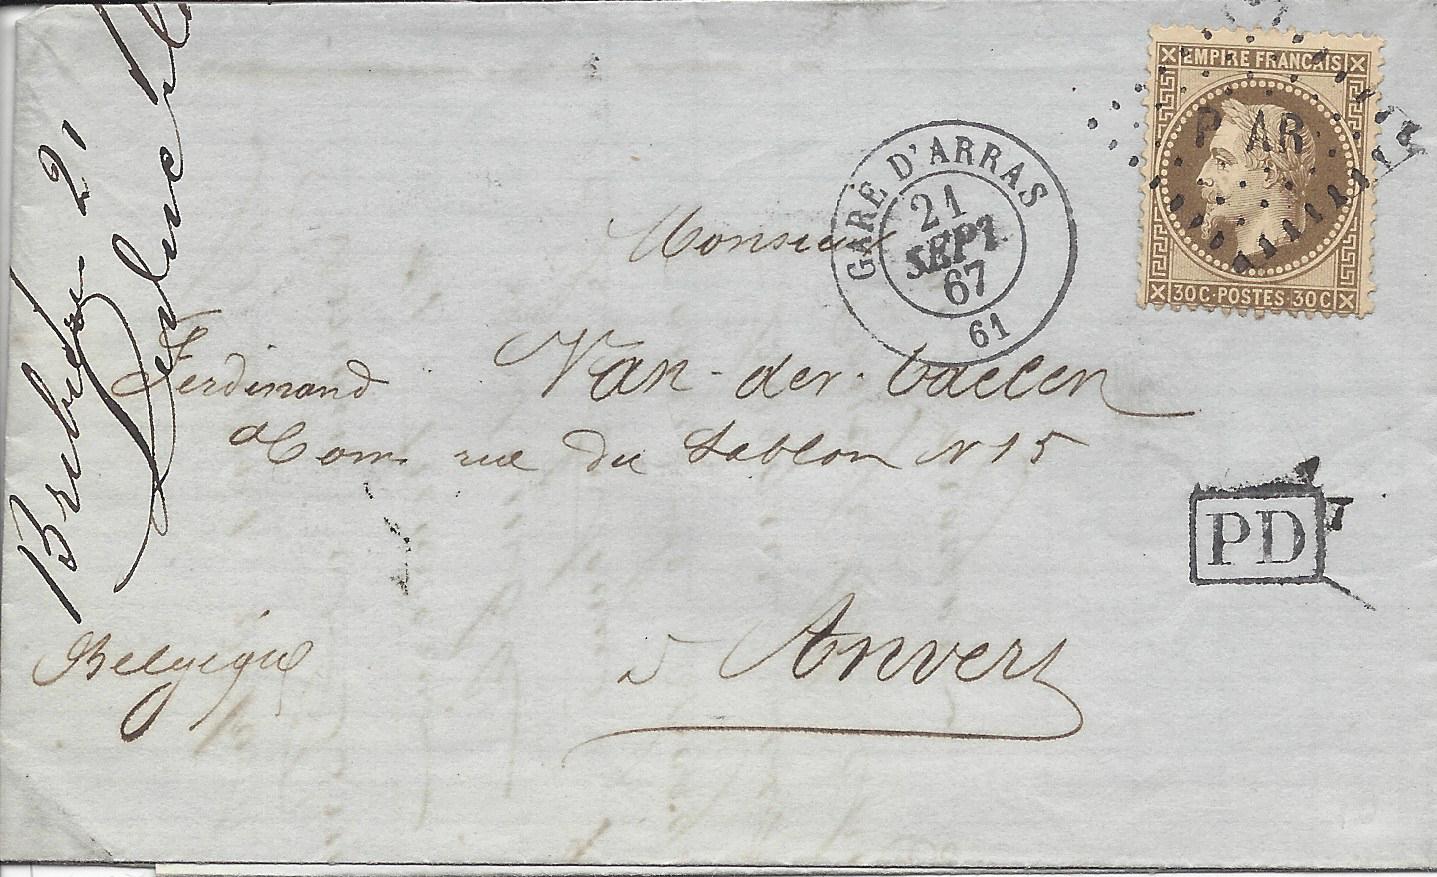 EMPIRE FRANCAIS
P AR
30C·POSTES 30C
GARE D'ARRAS
21
SEPT
67
61
Monsieur
Ferdinand Van-der-baelen
rue du Sablon N 15
PD
à Anvers
Belgique
21